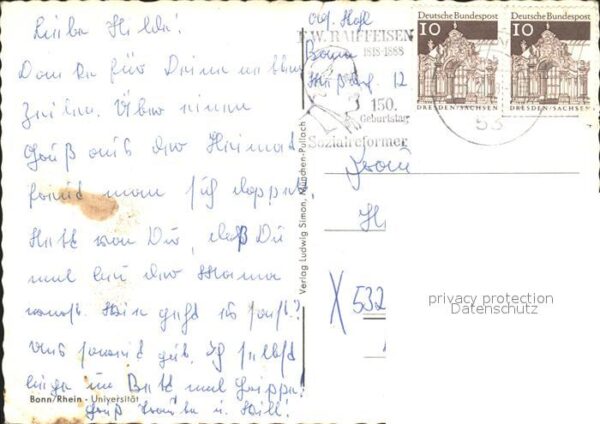 Liebe Hilde!
Danke für Deine netten
Zeilen. Über einen
Gruß aus der Heimat
freut man sich doppelt.
Nett von Dir, daß Du
mal bei der Mama
warst. Wie geht es sonst?
Uns soweit gut. Ich selbst
liege im Bett mit Grippe!
Bonn/Rhein - Universität
Gruß u.
Abs.
Bonn
12
F. W. RAIFFEISEN
1818-1888
150.
Geburtstag
Sozialreformer
53
Deutsche Bundespost
10
DRESDEN/SACHSEN
Deutsche Bundespost
10
DRESDEN/SACHSEN
Verlag Ludwig Simon, München-Pullach
532
privacy protection
Datenschutz